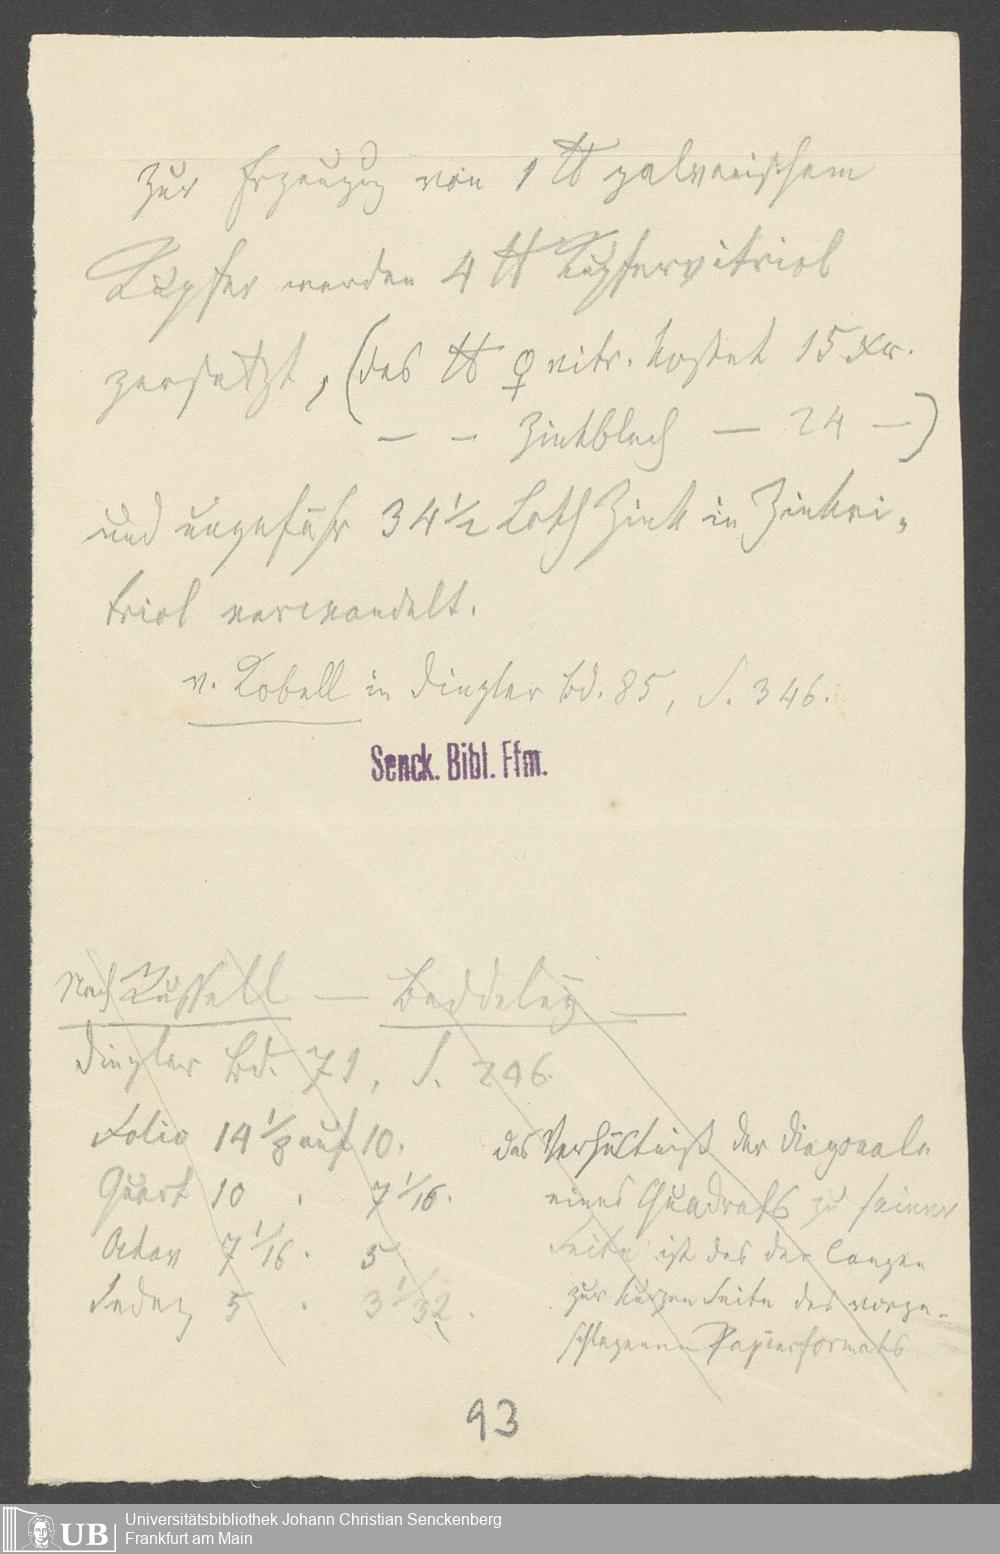 Zur Erzeugung von 1 ℔ galvanischem
Kupfer werden 4 ℔ Kupfervitriol
zersetzt, (das ℔ ♀ vitr. kostet 15 Xr.
— — Zinkblech — 24 —)
und ungefähr 34 ½ Loth Zink in Zinkvi-
triol verwandelt.
v. Kobell in Dingler Bd. 85, S. 346.
Senck. Bibl. Ffm.
Nach Russell — Baddeley —
Dingler Bd. 71, S. 246.
Folio 14 1/8 auf 10.
Quart 10 . 7 1/16.
Octav 7 1/16 . 5
Sedez 5 . 3 1/32.
das Verhältniß der Diagonale
eines Quadrats zu seiner
Seite ist das der langen
zur kurzen Seite des vorge-
schlagenen Papierformats
93
UB
Universitätsbibliothek Johann Christian Senckenberg
Frankfurt am Main